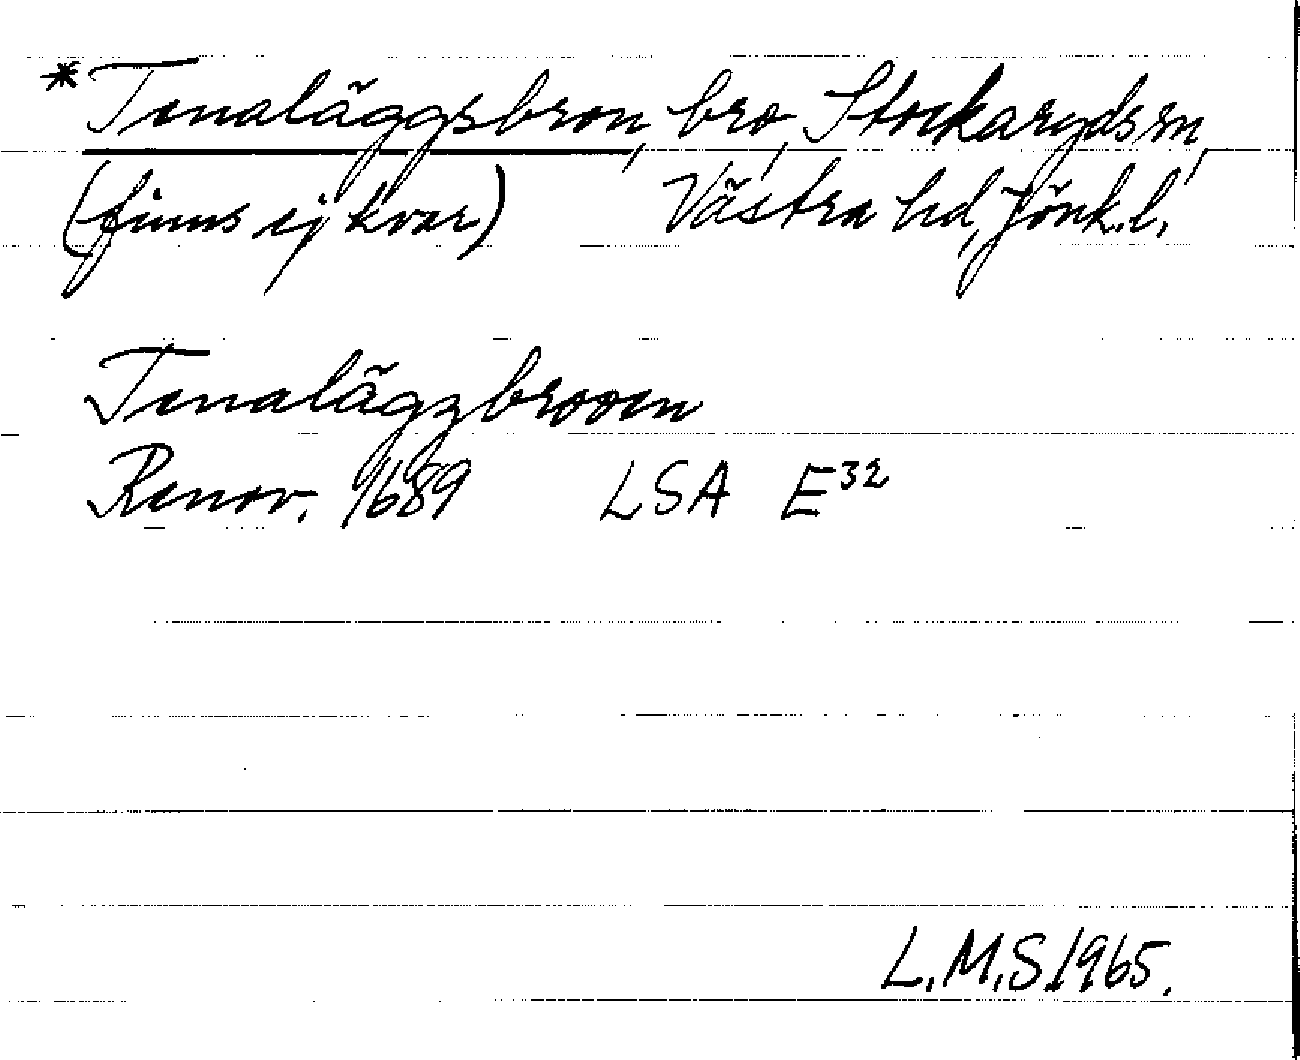 *Tenaläggsbron, bro, Stockaryds sn,
(finns ej kvar) Västra hd, Jönk.l.
Tenalägzbrooen
Renov. 1689 LSA E32
L.M.S 1965.